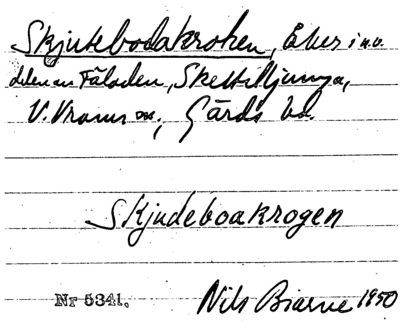 Skjutebodakroken, åker i n.v.
delen av Fäladen, Skättilljunga,
V. Vrams sn, Gärds hd.
Skjudeboakrogen
Nr 5341. Nils Bjarne 1950